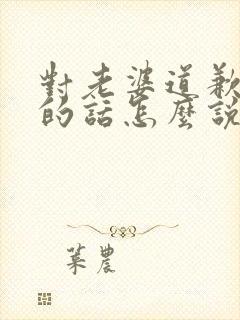 對老婆道歉
的話怎麼說
葉農